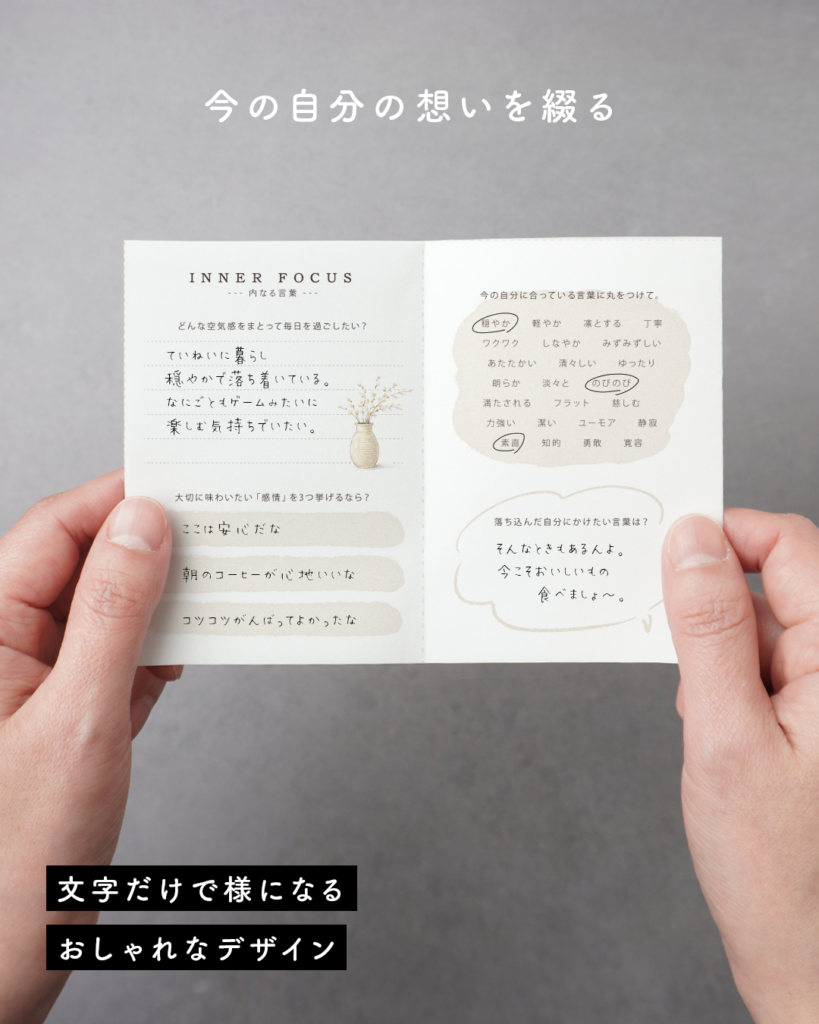 今の自分の想いを綴る
INNER FOCUS
--- 内なる言葉 ---
どんな空気感をまとって毎日を過ごしたい?
ていねいに暮らし
穏やかで落ち着いている。
なにごともゲームみたいに
楽しむ気持ちでいたい。
大切に味わいたい「感情」を3つ挙げるなら?
ここは安心だな
朝のコーヒーが心地いいな
コツコツがんばってよかったな
今の自分に合っている言葉に丸をつけて。
穏やか 軽やか 凛とする 丁寧
ワクワク しなやか みずみずしい
あたたかい 清々しい ゆったり
朗らか 淡々と のびのび
満たされる フラット 慈しむ
力強い 潔い ユーモア 静寂
素直 知的 勇敢 寛容
落ち込んだ自分にかけたい言葉は?
そんなときもあるんよ。
今こそおいしいもの
食べましょ〜。
文字だけで様になる
おしゃれなデザイン